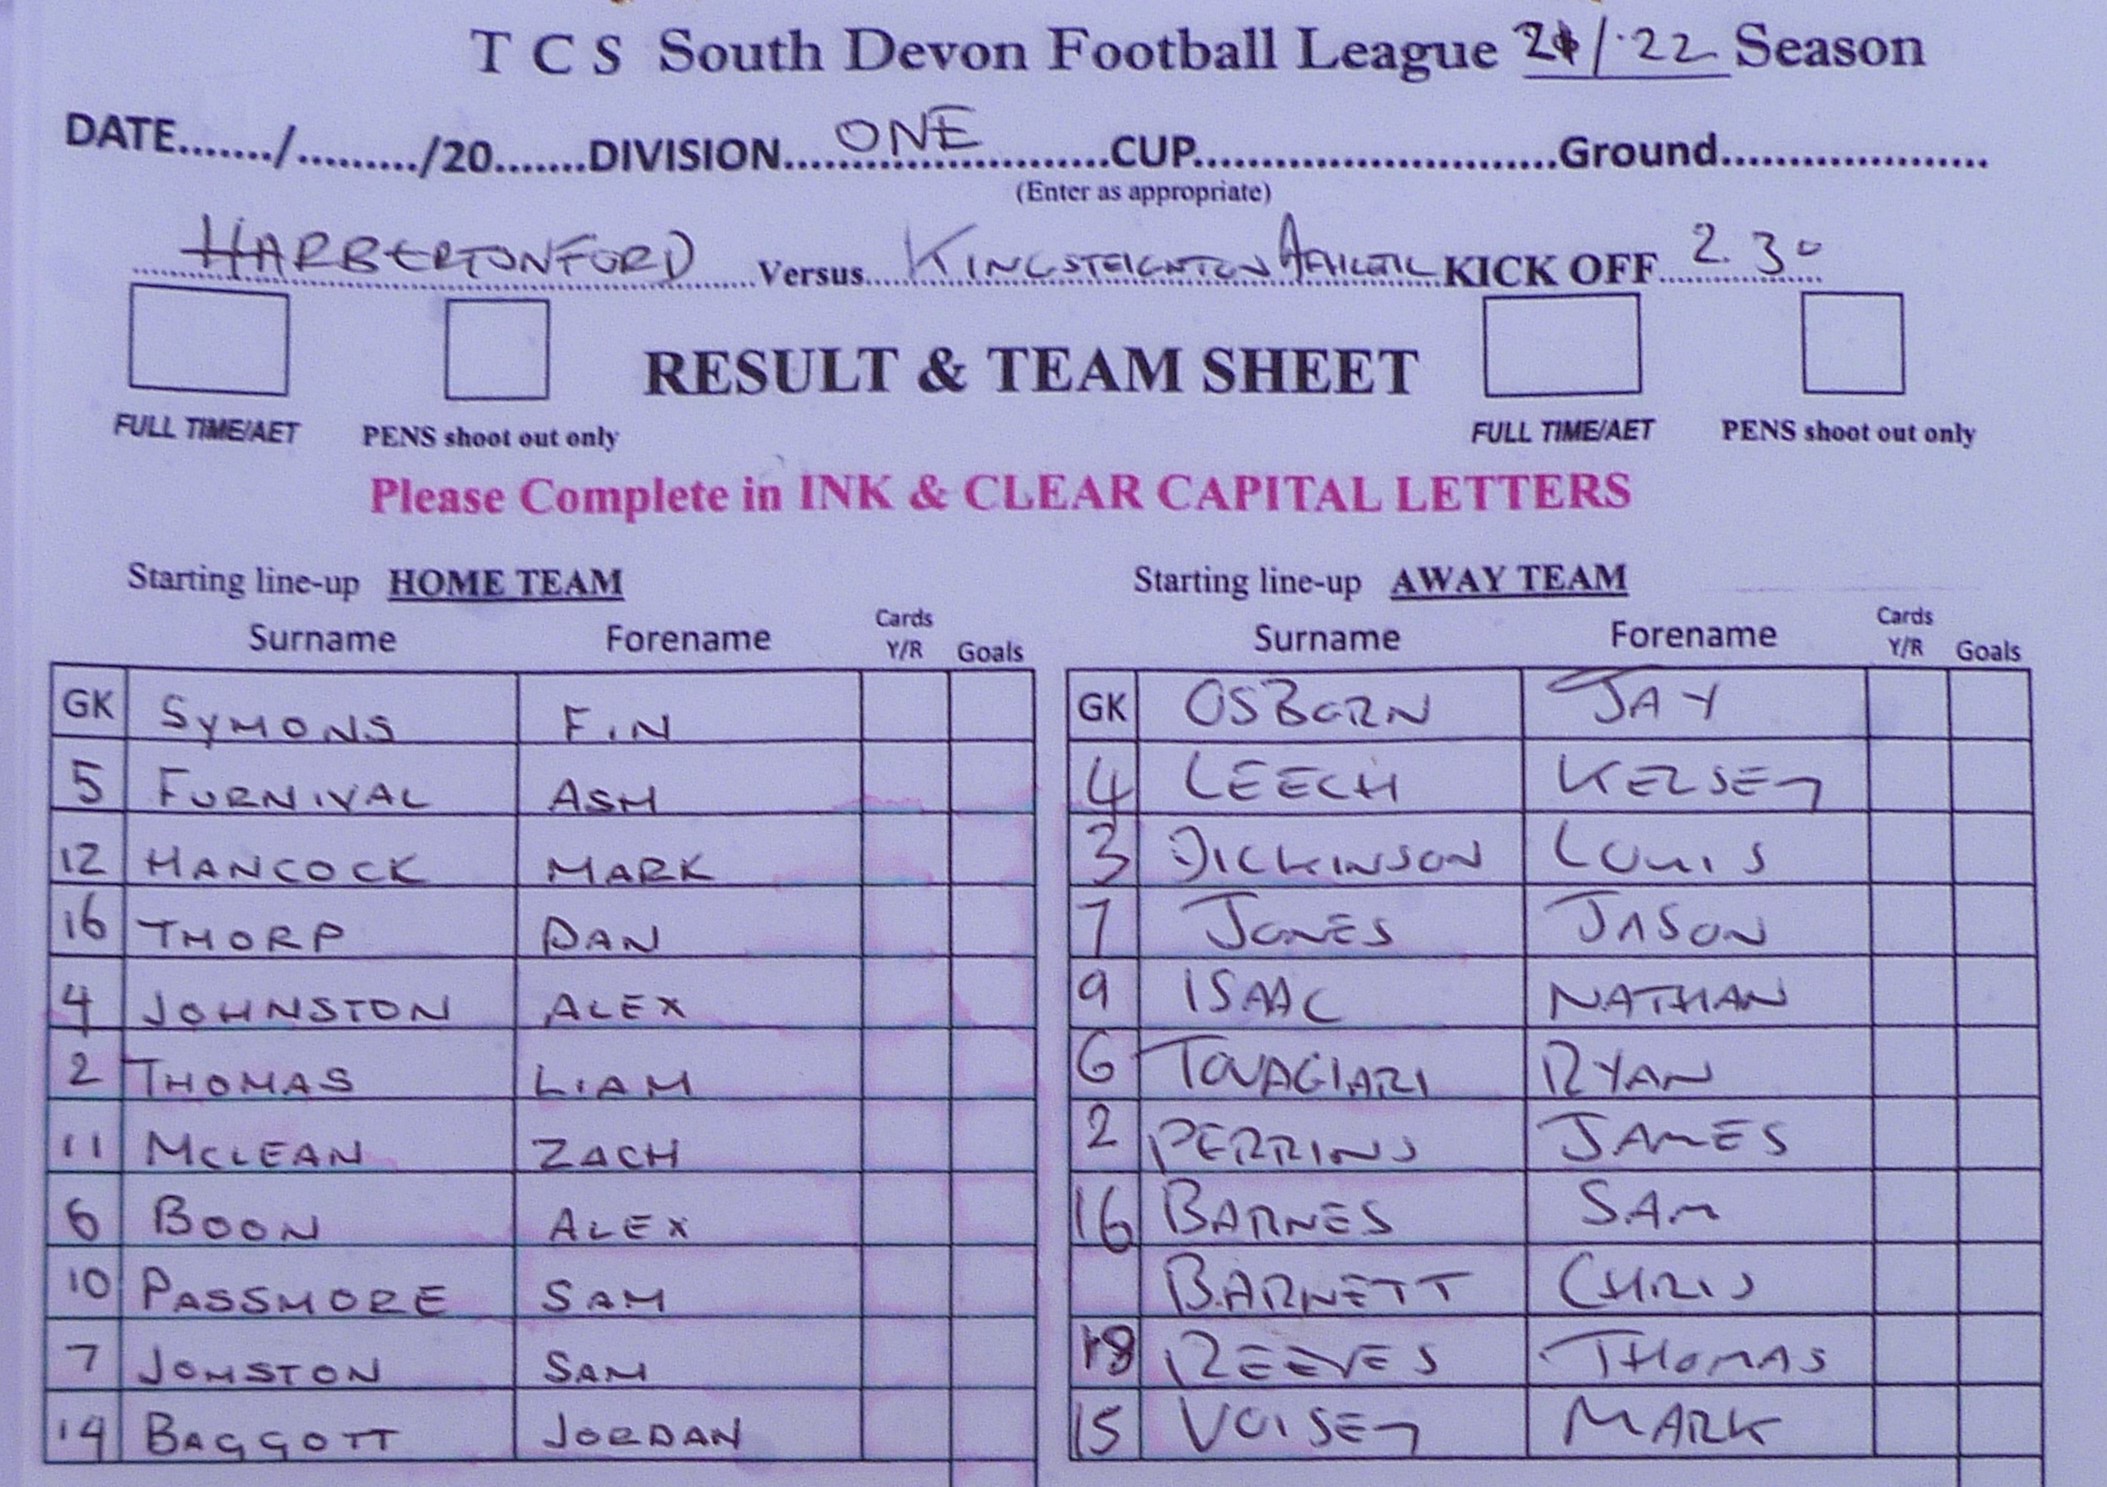 T C S South Devon Football League 21/22 Season
DATE......./........./20.......DIVISION....ONE....CUP...........................Ground....................
(Enter as appropriate)
HARBERTONFORD Versus KINGSTEIGNTON ATHLETIC KICK OFF 2.30
RESULT & TEAM SHEET
FULL TIME/AET PENS shoot out only FULL TIME/AET PENS shoot out only
Please Complete in INK & CLEAR CAPITAL LETTERS
Starting line-up HOME TEAM
Surname Forename Cards Y/R Goals
GK SYMONS FIN
5 FURNIVAL ASH
12 HANCOCK MARK
16 THORP DAN
4 JOHNSTON ALEX
2 THOMAS LIAM
11 MCLEAN ZACH
6 BOON ALEX
10 PASSMORE SAM
7 JOHSTON SAM
14 BAGGOTT JORDAN
Starting line-up AWAY TEAM
Surname Forename Cards Y/R Goals
GK OSBORN JAY
4 LEECH KELSEY
3 DICKINSON LOUIS
7 JONES JASON
9 ISAAC NATHAN
6 RYAN
2 PERRINS JAMES
16 BARNES SAM
BARNETT CHRIS
18 REEVES THOMAS
15 VOISEY MARK